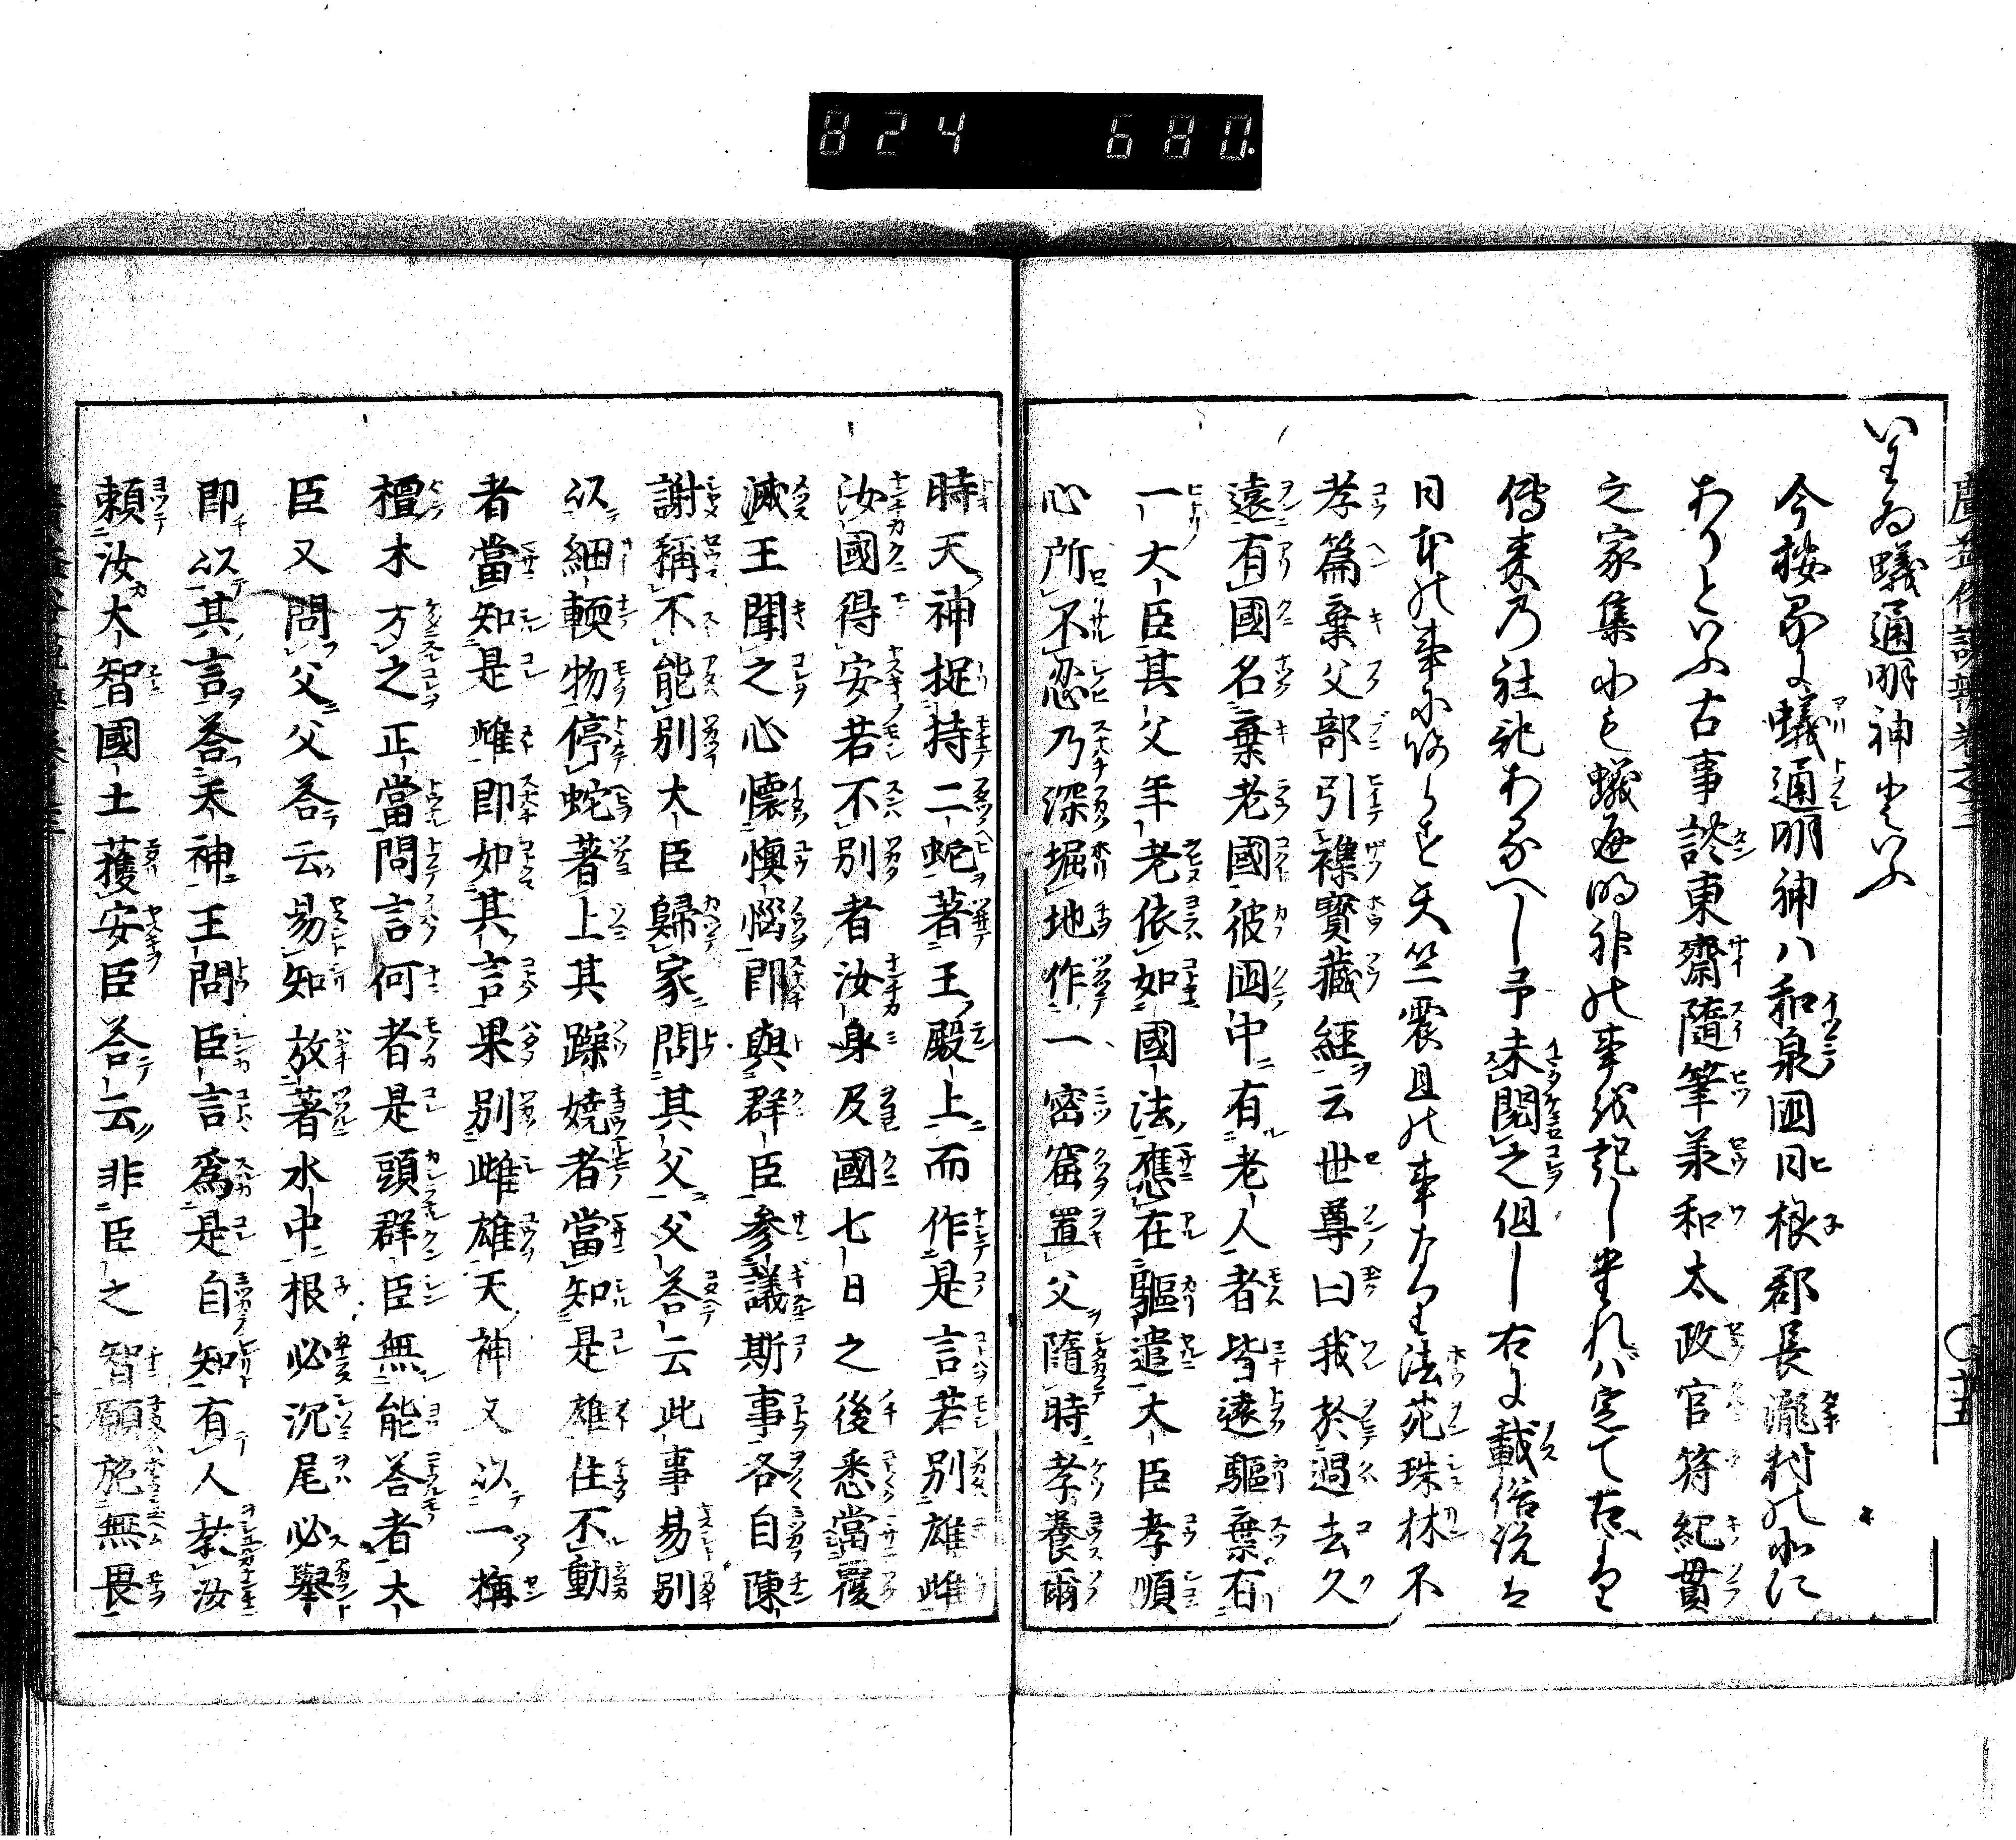 824 680
いまゐ蟻通明神とといふ
今按るに蟻通明神ハ和泉国日根郡長瀧村の北に
ありといふ古事談東齋隨筆羕和太政官符紀貫
之家集にも蟻通の神の事紀しまれバ定て古き
傳来乃社記あるべし予未閲之但し右に載俗説は
日本の事にあらそ天竺震旦の事なり法苑珠林不
孝篇棄父部引襍寶藏經云世尊曰我於過去久
遠有國名棄老國彼国中有老人者皆遠驅棄有
一大臣其父年老依如國法應在驅遣大臣孝順
心所不忍乃深堀地作一密窟置父隨時孝養爾
時天神捉持二蛇著王殿上而作是言若別雄雌
汝國得安若不別者汝身及國七日之後悉當覆
滅王聞之心懷懊惱即與群臣參議斯事各自陳
謝稱不能別大臣歸家問其父父答云此事易別
以細輭物停蛇著上其躁嬈者當知是雄住不動
者當知是雌即如其言果別雌雄天神又以一栴
檀木方之正當問言何者是頭群臣無能答者大
臣又問父父答云易知放著水中根必沉尾必舉
即以其言答天神王問臣言爲是自知有人教汝
頼汝大智國土獲安臣答云非臣之智願施無畏